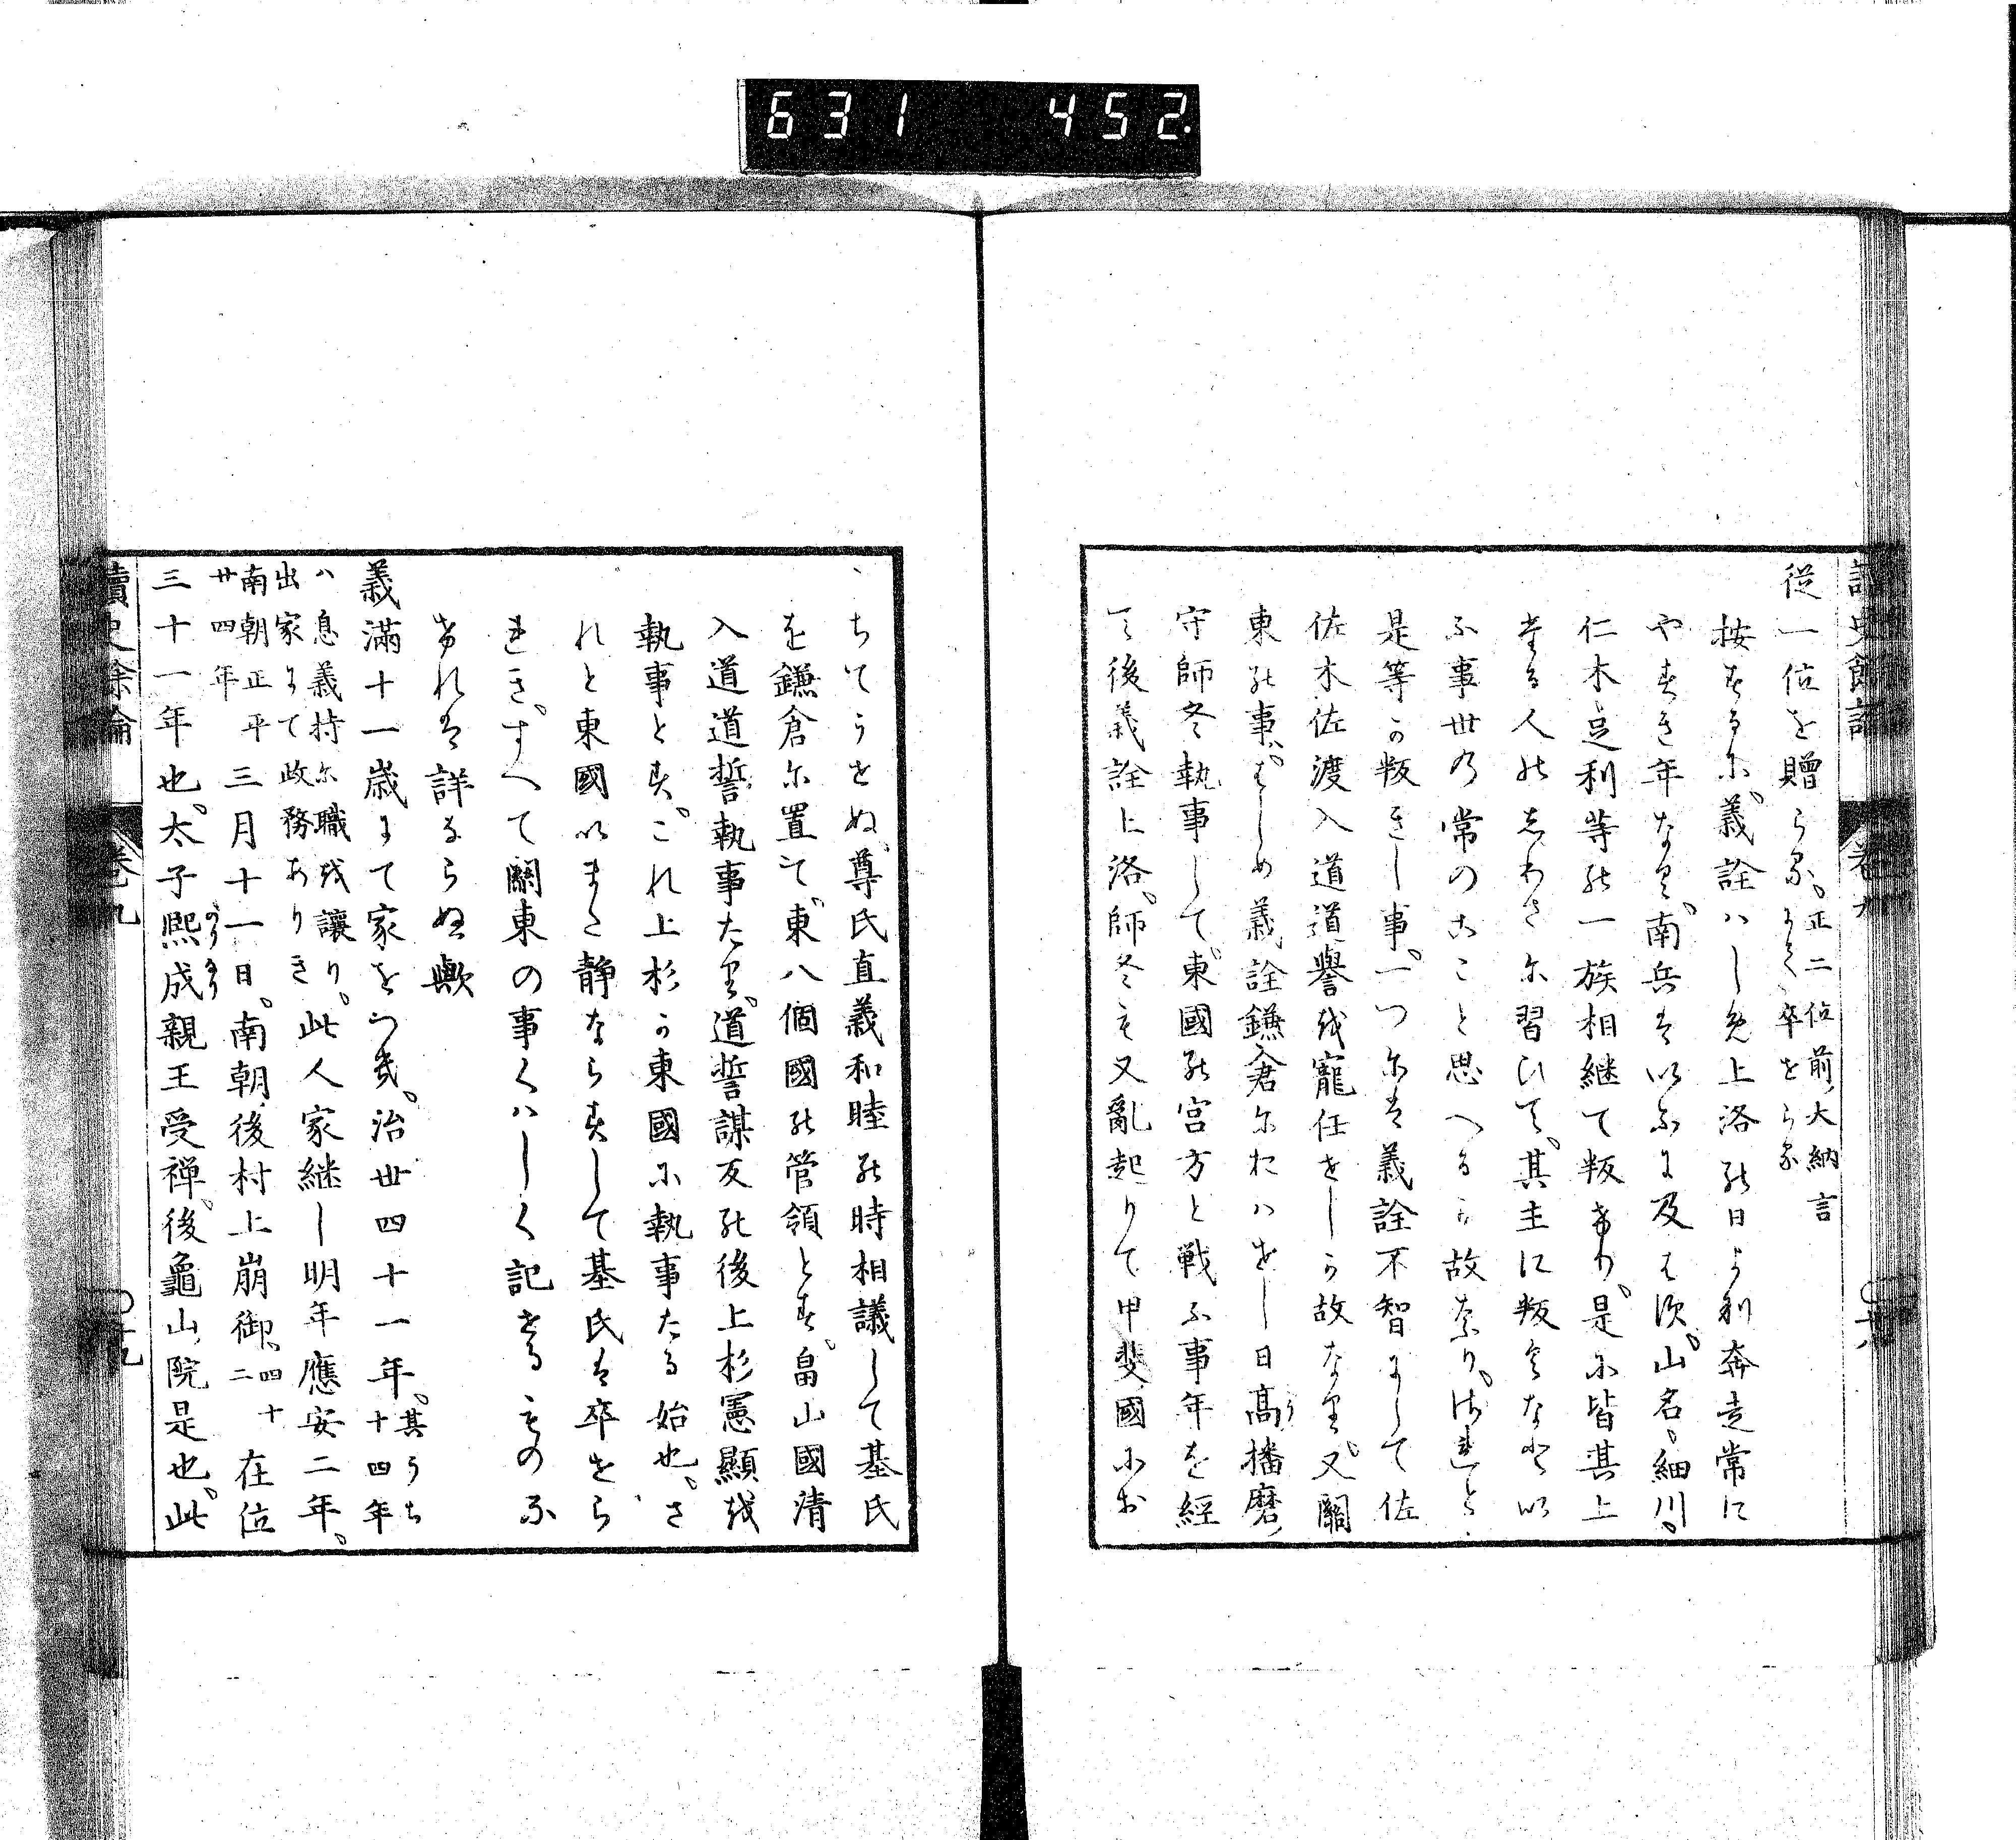 631 452
讀史餘論 卷九
從一位を贈らる、正二位前ノ大納言
にて、卒せらる
按するに、義詮ハしめ上洛の日より利奔走常に
やすき年なし、南兵はいふに及はす、山名、細川、
仁木足利等の一族相継て叛けり、是に皆其上
たる人のしわさに習ひて、其主に叛くなといい
ふ事世の常のことと思へるか故なり、されと
是等の叛きし事、一つには義詮不智にして佐
佐木佐渡入道道譽を寵任せしか故なり、又關
東の事、はしめ義詮鎌倉におハせし日高播磨ノ
守師冬執事して、東國の宮方と戰ふ事年を經
て後義詮上洛、師冬も又亂起りて甲斐ノ國にお
ちてうせぬ、尊氏直義和睦の時相議して基氏
を鎌倉に置て、東八個國の管領とす、畠山國清
入道道誓執事たり、道誓謀反の後上杉憲顯を
執事とす、これ上杉か東國に執事たる始也、さ
れと東國いまた静ならすして基氏は卒せら
れき、すへて關東の事くハしく記せるものな
けれは詳ならぬ歟
義滿十一歳にて家をつく、治世四十一年、其うち
十四年
ハ息義持に職を讓り、此人家継し明年應安二年、
出家にて政務ありき
南朝正平三月十一日、南朝後村上崩御、四十
二 在位
廿四年
三十一年也、太子熙成親王受禅、後龜山院是也、此
讀史餘論 卷九 〇十九